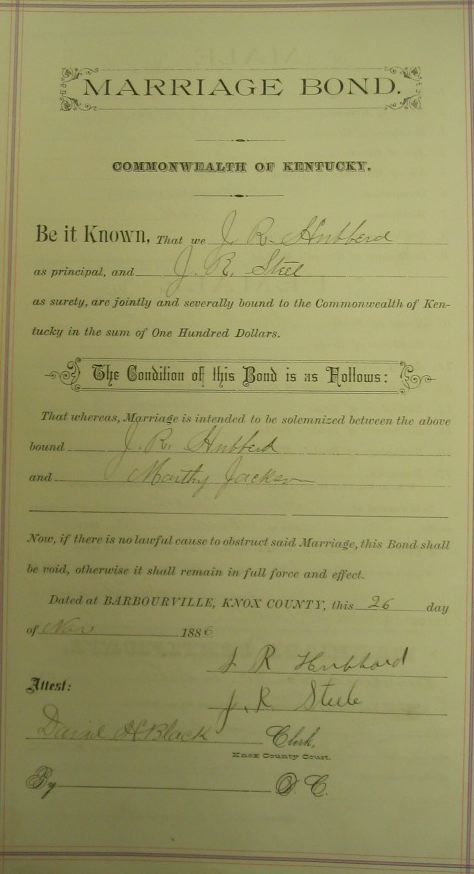 MARRIAGE BOND.
COMMONWEALTH OF KENTUCKY.
Be it Known, That we J. R. Hubberd
as principal, and J. R. Steel
as surety, are jointly and severally bound to the Commonwealth of Ken-
tucky in the sum of One Hundred Dollars.
The Condition of this Bond is as Follows:
That whereas, Marriage is intended to be solemnized between the above
bound J. R. Hubberd
and Marthy Jackson
Now, if there is no lawful cause to obstruct said Marriage, this Bond shall
be void, otherwise it shall remain in full force and effect.
Dated at BARBOURVILLE, KNOX COUNTY, this 26 day
of Nov 1886
J R Hubbard
Attest:
J. R Steele
Black Clerk,
Knox County Court.
By D. C.